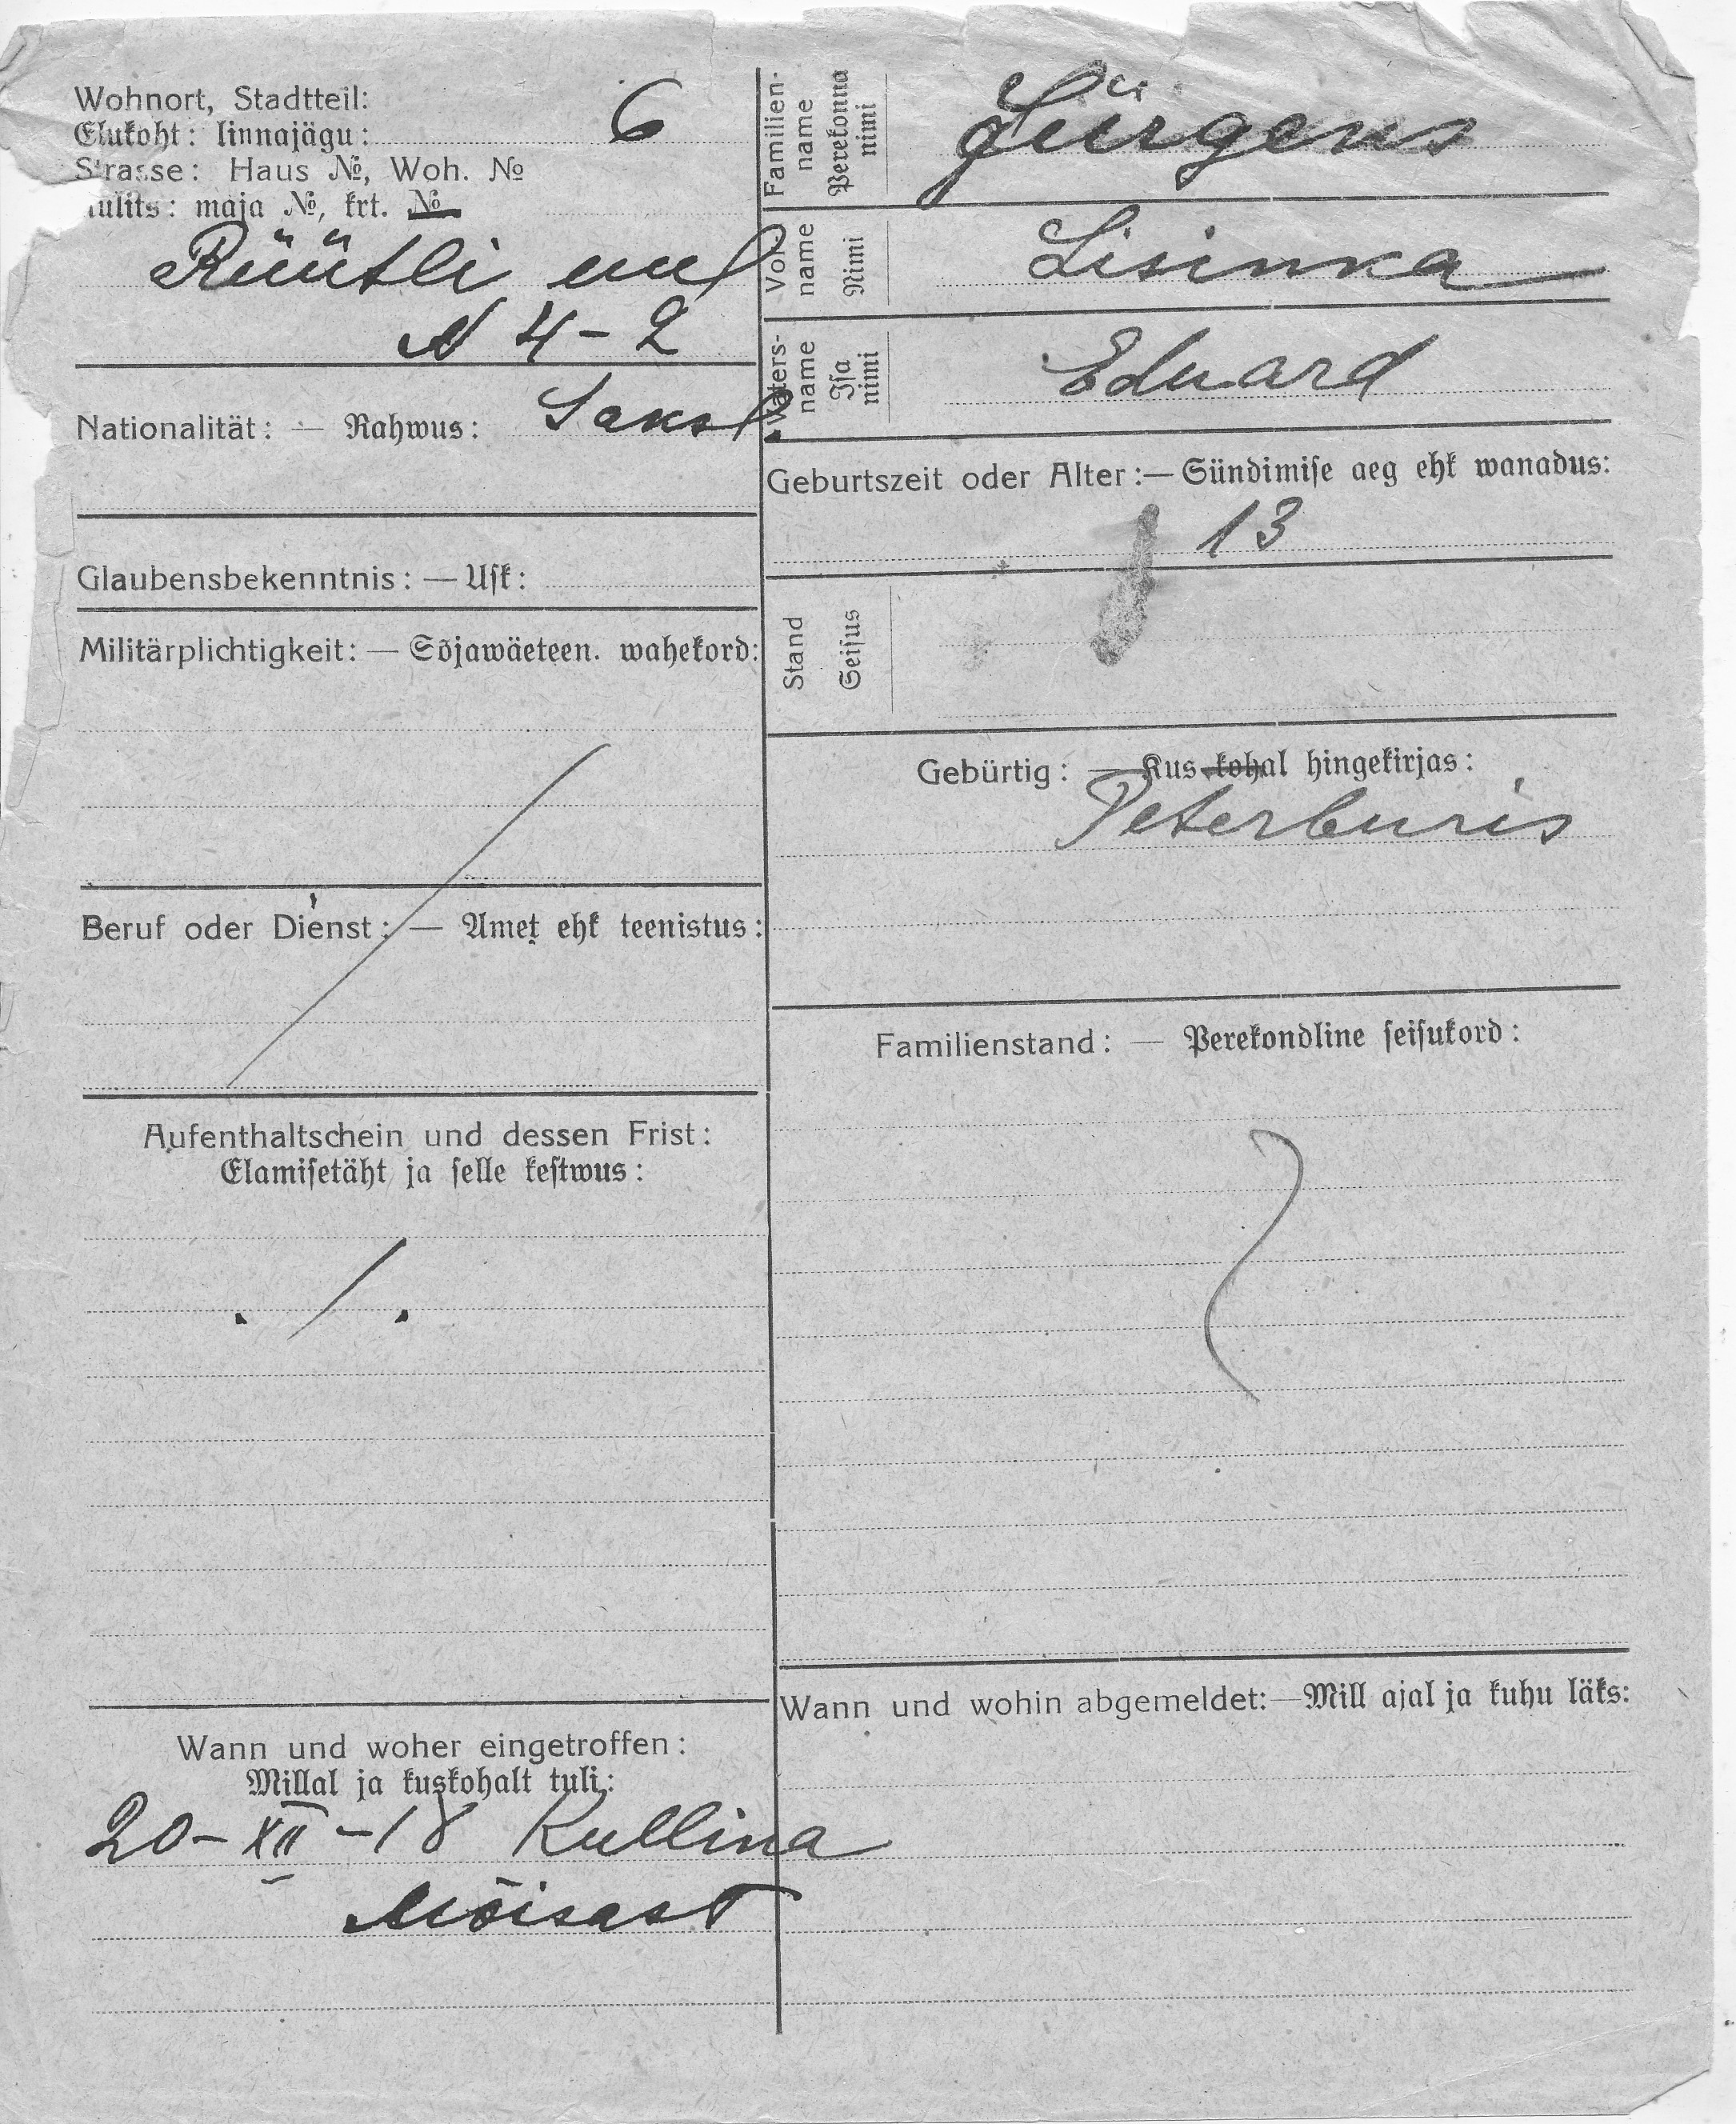 Wohnort, Stadtteil:
Elukoht: linnajägu: 6
Strasse: Haus №, Woh. №
uulits: maja №, krt. №
Rüütli uul
N 4-2
Nationalität: — Rahwus: Saksl.
Glaubensbekenntnis: — Usk:
Militärplichtigkeit: — Sõjawäeteen. wahekord:
Beruf oder Dienst: — Amet ehk teenistus:
Aufenthaltschein und dessen Frist:
Elamisetäht ja selle kestwus:
./.
Wann und woher eingetroffen:
Millal ja kuskohalt tuli:
20-XII-18 Kullina
Mõisast
Familien-
name
Perekonna
nimi
Jürgens
Vor-
name
Nimi
Lisinka
Vaters-
name
Isa
nimi
Eduard
Geburtszeit oder Alter: — Sündimise aeg ehk wanadus:
13
Stand
Seisus
Gebürtig: — Kus kohal hingekirjas:
Peterburis
Familienstand: — Perekondline seisukord:
Wann und wohin abgemeldet: — Mill ajal ja kuhu läks: